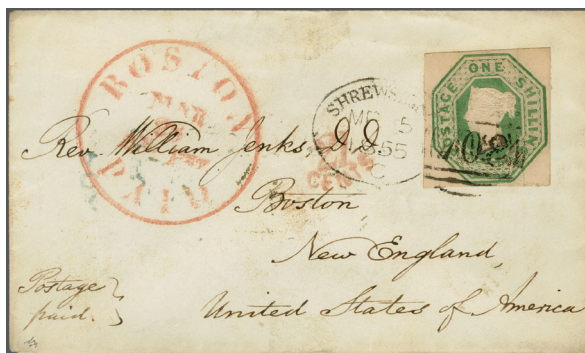 BOSTON
MAR
PAID
SHREWS
MR 5
1855
C
POSTAGE ONE SHILLIN
CENTS
Rev. William Jenks, D.D.
Boston,
New England,
United States of America
Postage
paid.